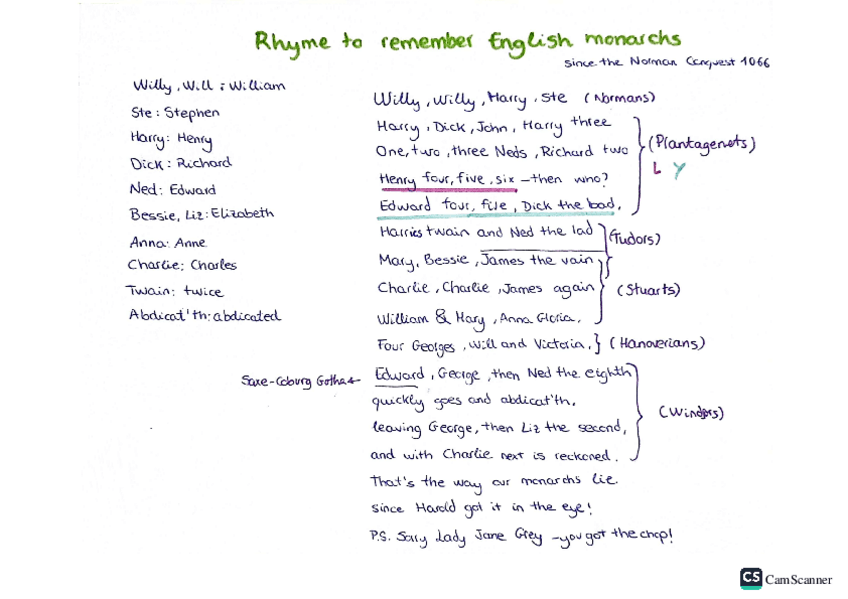 Rhyme to remember English monarchs
since the Norman Conquest 1066
Willy, Will : William
Ste : Stephen
Harry : Henry
Dick : Richard
Ned : Edward
Bessie, Liz : Elizabeth
Anna : Anne
Charlie : Charles
Twain : twice
Abdicat'th : abdicated
Willy, Willy, Harry, Ste (Normans)
Harry, Dick, John, Harry three
One, two, three Neds, Richard two (Plantagenets)
L Y
Henry four, five, six - then who?
Edward four, five, Dick the bad,
Harries twain and Ned the lad (Tudors)
Mary, Bessie, James the vain
Charlie, Charlie, James again (Stuarts)
William & Mary, Anna Gloria,
Four Georges, Will and Victoria, (Hanoverians)
Saxe-Coburg Gotha ← Edward, George, then Ned the eighth
quickly goes and abdicat'th,
leaving George, then Liz the second, (Windsors)
and with Charlie next is reckoned.
That's the way our monarchs lie
since Harold got it in the eye!
P.S. Sorry Lady Jane Grey - you got the chop!
CS CamScanner